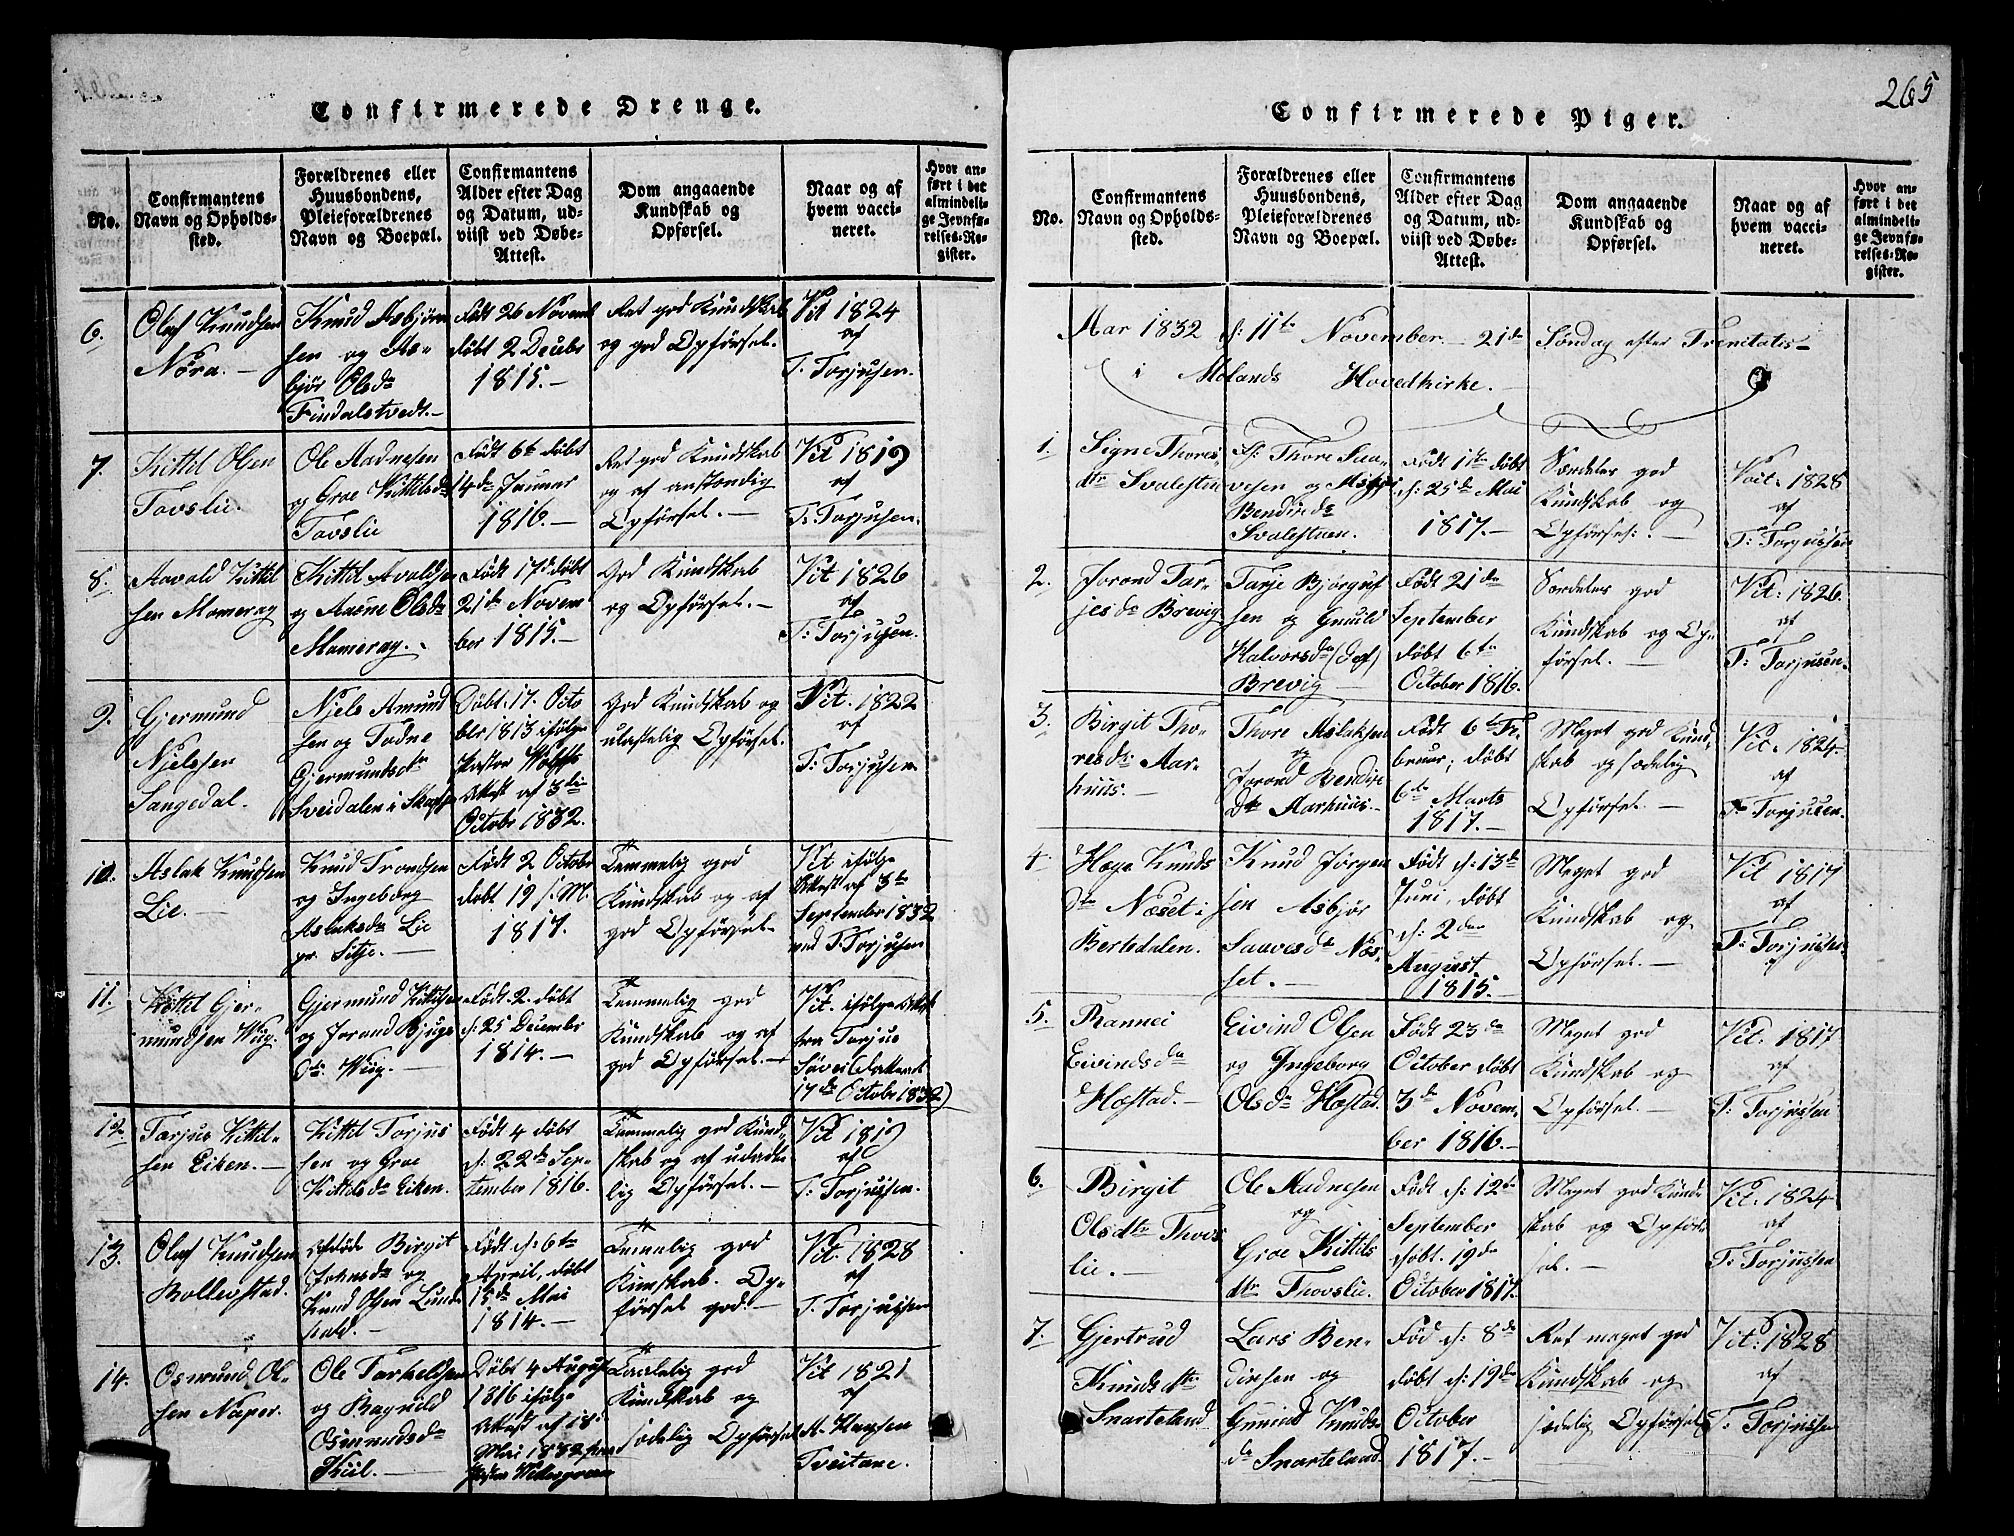 265
Confirmerede Drenge.
No.
Confirmantens
Navn og Opholds-
sted.
Forældrenes eller
Huusbondens,
Pleieforældrenes
Navn og Boepæl.
Confirmantens
Alder efter Dag
og Datum, ud-
viist ved Døbe-
Attest.
Dom angaaende
Kundskab og
Opførsel.
Naar og af
hvem vacci-
neret.
Hvor an-
ført i det
almindeli-
ge Jevnfø-
relses-Re-
gister.
6.
Oluf Knudsen
Nora.
Knud Asbjørn
sen og As-
bjør Olsdr
Findalstvedt.
Født 26 Novemb
døbt 2 Decbr
1815.
Ret god Kundskab
og god Opførsel.
Vit 1824
af
T. Torjusen.
7.
Kittil Olsen
Tovslie.
Ole Aadnesen
og Groe Kittilsdr
Tovslie
Født 6te døbt
14de Januar
1816.
Ret god Kundskab
og af anstændig
Opførsel.
Vit 1819
af
T: Torjusen.
8.
Aavald Kittil
sen Momrag
Kittil Avaldsen
og Aasne Olsdr
Momerag.
Født 17d døbt
21de Novem
ber 1815.
God Kundskab
og Opførsel.
Vit 1826
af
T: Torjusen.
9.
Gjermund
Njelssen
Sangedal.
Njels Amund
sen og Todne
Gjermundsdr
Sveidalen i Skafsse
Døbt 17. Octo
ber 1813 ifølge
Pastor Wolffs
Attest af 3die
Octobr 1832.
God Kundskab og
ulastelig Opførsel.
Vit. 1822
af
T: Torjusen.
10.
Aslak Knudsen
Lie.
Knud Trondsen
og Ingeborg
Aslaksdr Lie
pr. Sitje.
Født 2 Octobr
døbt 19 s. M.
1817.
Temmelig god
Kundskab og af
god Opførsel.
Vit ifølge
Attest af 3de
September 1832
ved T. Torjusen
11.
Kittil Gjer-
mundsen Wiig.
Gjermund Kittilsen
og Jorand Bjuge
Dtr. Wiig.
Født 2. døbt
d: 25 Decembr
1814.
Temmelig god
Kundskab og af
god Opførsel.
Vit. ifølge Attest
fra Torjus
17de Octobr 1832)
12
Tarjus Kittil-
sen Eiken.
Kittil Torjus
sen og Groe
Kittilsdr Eiken.
Født 4 døbt
d: 22de Sep-
tember 1816.
Temmelig god Kund-
skab og af udade-
lig Opførsel.
Vit 1819
af
T: Torjussen.
13.
Oluf Knudsen
Rollevstad.
Birgit
Johnsdr og
Knud Olsen Lund
hald.
Født d: 6te
April, døbt
15de Mai
1814.
Temmelig god
Kunskab. Op-
førsel god.
Vit. 1828
af
T. Torjussen
14.
Osmund Ol-
sen Naper.
Ole Tarkeldsen
og Ragnild
Osmundsdr
Kiil.
Døbt 4 August
1816 ifølge
Attest af 18d
Mai 1832 fra
Taalelig god
Kundskab og
sædelig Opførsel
Vit 1821
af
A. Knudsen
Tveitane.
Confirmerede Piger.
No.
Confirmantens
Navn og Opholds-
sted.
Forældrenes eller
Huusbondens,
Pleieforældrenes
Navn og Boepæl.
Confirmantens
Alder efter Dag
og Datum, ud-
viist ved Døbe-
Attest.
Dom angaaende
Kundskab og
Opførsel.
Naar og af
hvem vacci-
neret.
Hvor an-
ført i det
almindeli-
ge Jevnfø-
relses-Re-
gister.
Aar 1832 d: 11te November - 21de Søndag efter Trenitatis
i Molands Hovedkirke.
1.
Signe Thores-
dtr Svalestuen
Thore Saa-
vesen og
Bendixsdr
Svalestuen.
Født 1ste døbt
d: 25de Mai
1817.
Særdeles god
Kundskab og
Opførsel.
Vait. 1828
af
T: Torjussen
2.
Jorond Tar-
jesdr Brevig
Tarje Bjorguf
sen og Gunild
Halvorsdr
Brevig
Født 21de
September
døbt 6te
October 1816.
Særdeles god
Kundskab og Op-
førsel.
Vit: 1826.
af
T: Torjusen.
3.
Birgit Tho-
resdr Aar-
huus.
Thore Aslaksen
og
Jorond Bendix
Dtr Aarhuus.
Født 6te Fe-
bruar, døbt
6te Marts
1817.
Meget god Kund-
skab og sædelig
Opførsel.
Vit. 1824.
af
T. Torjussen.
4.
Hæge Knuds
dtr Næset i
Bertedalen.
Knud Jørgen
sen Asbjør
Saavesdr Næs-
set.
Født d: 13de
Juni, døbt
d: 2den
August
1815.
Meget god
Kundskab og
Opførsel.
Vit 1817
af
T: Torjussen.
5.
Rannei
Eivindsdr
Hæstad.
Eivind Olsen
og Ingeborg
Olsdr Hæstad.
Født 23de
October døbt
3de Novem-
ber 1816.
Meget god
Kundskab og
Opførsel.
Vit. 1817
af
T: Torjussen
6.
Birgit
Olsdtr Thovs
lie.
Ole Aadnesen
og
Groe Kittils
dtr Thovslie.
Født d: 12te
September
døbt. 19de
October 1817.
Meget god Kund
skab og Opfør
sel.
Vit. 1824
af
T: Torjussen
7.
Gjertrud
Knudsdtr
Snarteland
Lars Ben-
dixsen og
Gunild Knuds-
dr Snarteland.
Fød d: 8de
døbt d: 19de
October
1817.
Ret meget god
Kundskab og
sædelig Opførsel
Vit: 1828
af
T: Torjussen